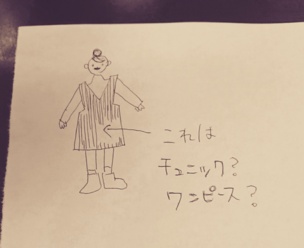 これは
チュニック?
ワンピース?